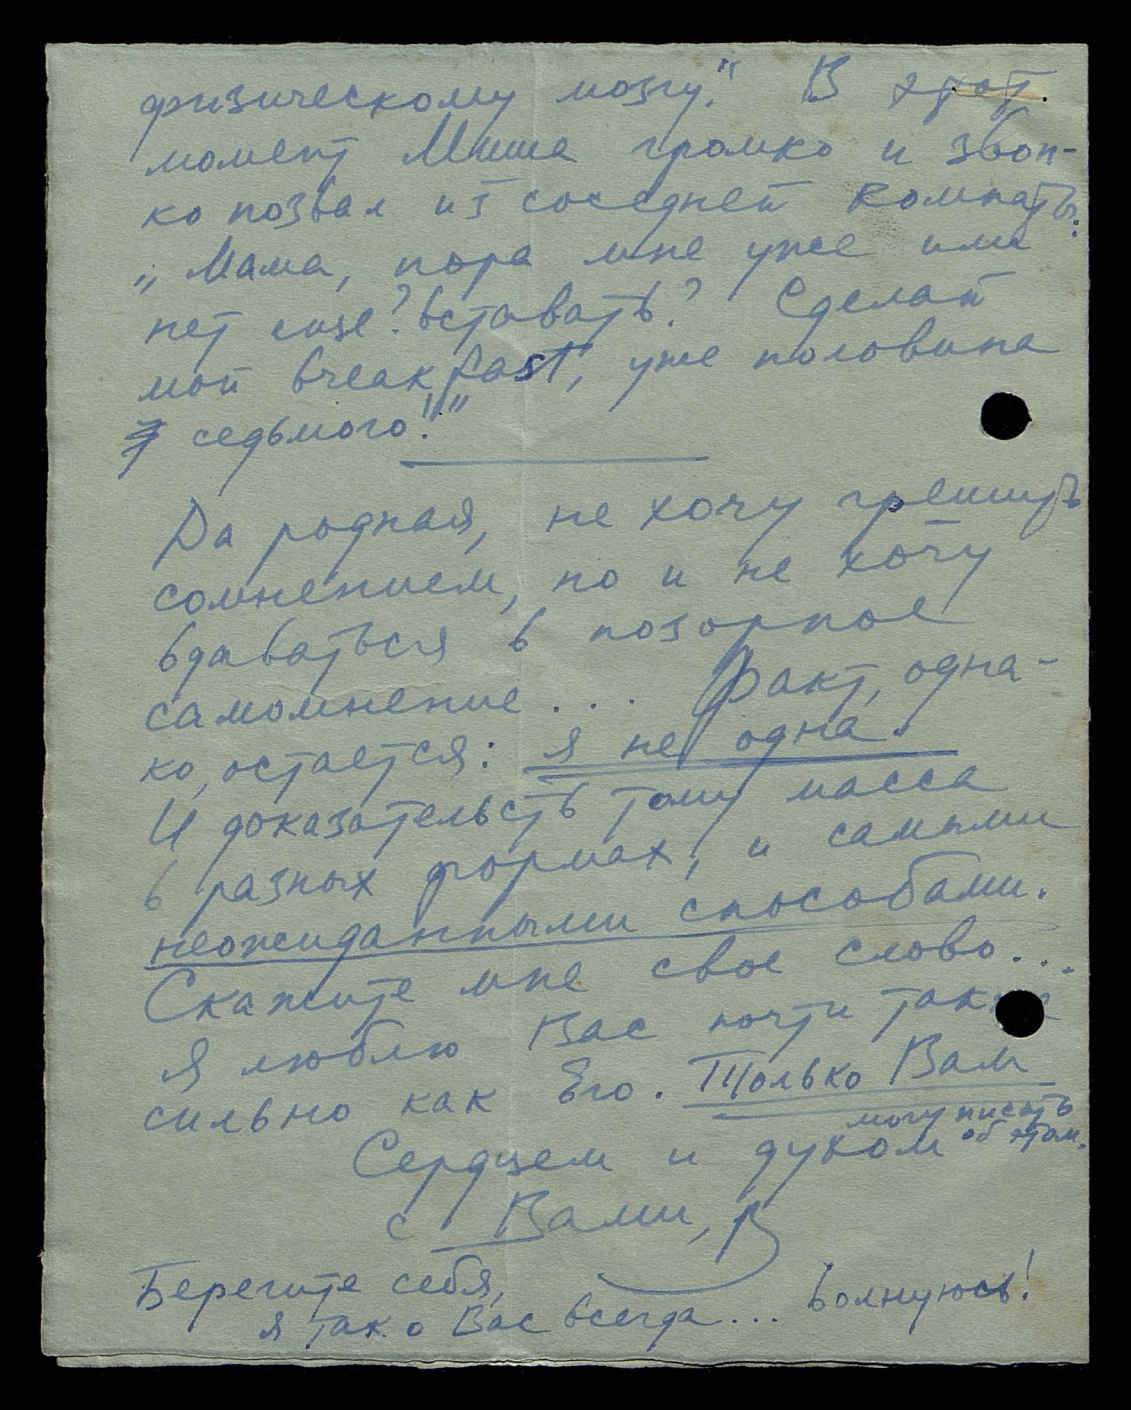 физическому мозгу." В этот
момент Миша громко и звон-
ко позвал из соседней комнаты:
„Мама, пора мне уже или
нет еще? вставать? Сделай
мой breakfast, уже половина
седьмого!"
Да родная, не хочу грешить
сомнением, но и не хочу
вдаваться в позорное
самомнение... Факт, одна-
ко, остается: я не одна.
И доказательств тому масса
в разных формах, и самыми
неожиданными способами.
Скажите мне свое слово...
Я люблю Вас почти так же
сильно как Его. Только Вам
могу писать
об этом.
Сердцем и духом
с Вами, В
Берегите себя,
я так о Вас всегда... волнуюсь!